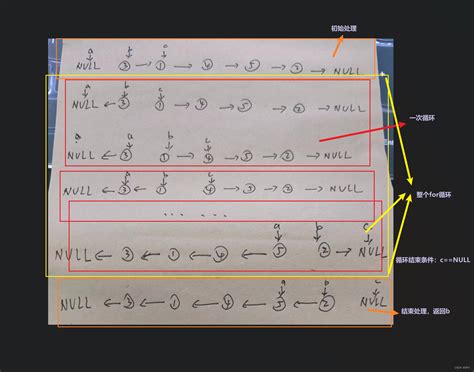 初始处理
a b c
NULL ③ → ① → ④ → ⑤ → ② → NULL
a b c
NULL ← ③ ① → ④ → ⑤ → ② → NULL
一次循环
a b c
NULL ← ③ ① → ④ → ⑤ → ② → NULL
a b c
NULL ← ③ ← ① ④ → ⑤ → ② → NULL
整个for循环
... ...
a b c
NULL ← ③ ← ① ← ④ ← ⑤ ② → NULL
循环结束条件：c==NULL
a b c
NULL ← ③ ← ① ← ④ ← ⑤ ← ② NULL
结束处理，返回b